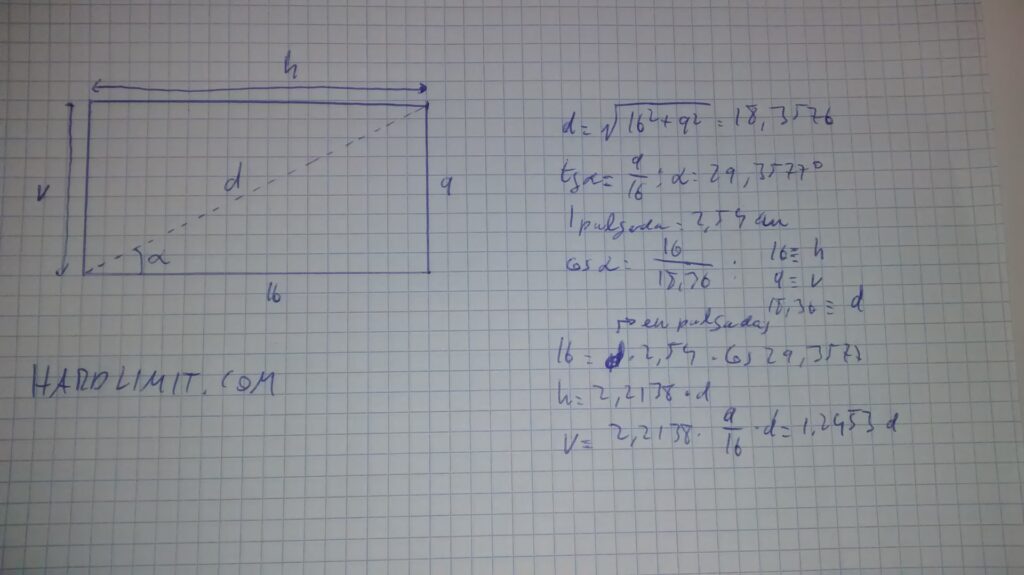 h
v
d
9
α
16
HARDLIMIT.COM
d = √16²+9² = 18,3576
tgα = 9/16 ; α = 29,3577°
1 pulgada = 2,54 cm
cos α = 16/18,36 ; 16 ≡ h
9 ≡ v
18,36 ≡ d
→ en pulgadas
16 = d · 2,54 · cos 29,3577
h = 2,2138 · d
v = 2,2138 · 9/16 · d = 1,2453 d